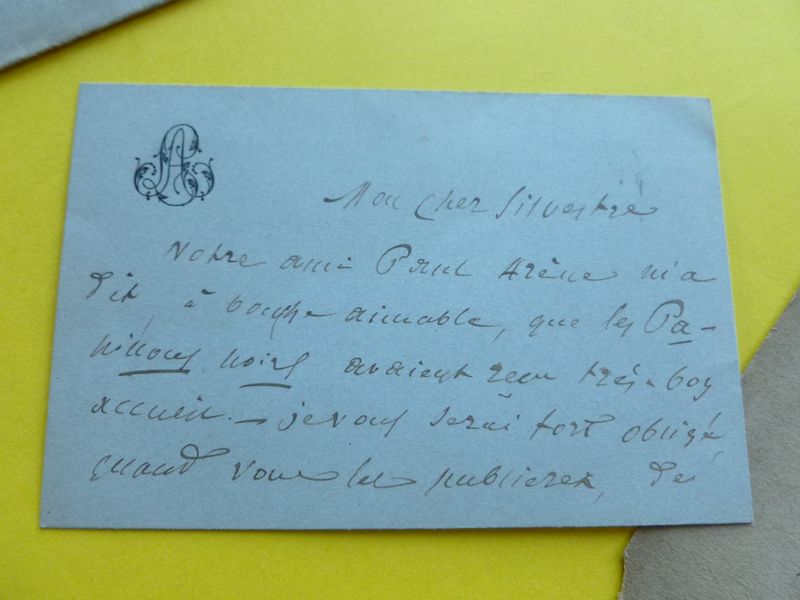 Mon cher Silvestre
Notre ami Paul Arène m'a
dit, à bouche aimable, que les Pa-
pillons noirs avaient reçu très-bon
accueil. — je vous serai fort obligé,
quand vous les publierez, de